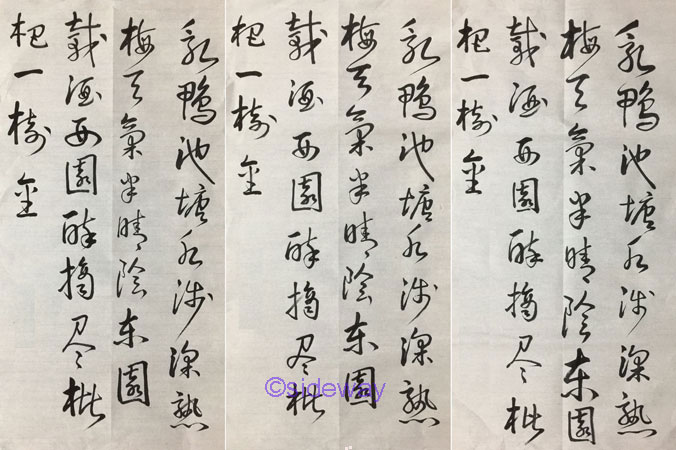 乳鴨池塘水浅深熟
梅天氣半晴陰东園
載酒西園醉摘尽枇
杷一樹金
乳鴨池塘水浅深熟
梅天氣半晴陰东園
載酒西園醉摘尽枇
杷一樹金
乳鴨池塘水浅深熟
梅天氣半晴陰东園
載酒西園醉摘尽枇
杷一樹金
©sideway